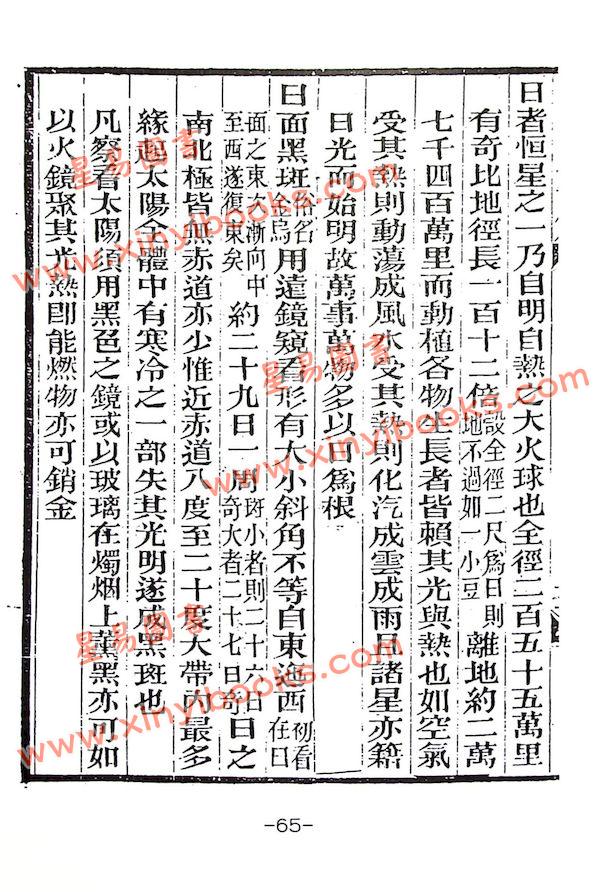 日者恒星之一乃自明自熱之大火球也全徑二百五十五萬里
有奇比地徑長一百十二倍設全徑二尺爲日則地不過如一小豆離地約二萬
七千四百萬里而動植各物生長者皆賴其光與熱也如空氣
受其熱則動蕩成風水受其熱則化汽成雲成雨月諸星亦籍
日光而始明故萬事萬物多以日爲根
日面黑斑俗名金烏用遠鏡窺看形有大小斜角不等自東迤西初看在日
面之東次漸向中至西遂復東矣約二十九日一周斑小者則二十六日奇大者二十七日奇日之
南北極皆無赤道亦少惟近赤道八度至二十度大帶內最多
緣起太陽全體中有寒冷之一部失其光明遂成黑斑也
凡察看太陽須用黑色之鏡或以玻璃在燭烟上薰黑亦可如
以火鏡聚其光熱即能燃物亦可銷金
-65-
星易圖書
www.xinyibooks.com
星易圖書
www.xinyibooks.com
星易圖書
www.xinyibooks.com